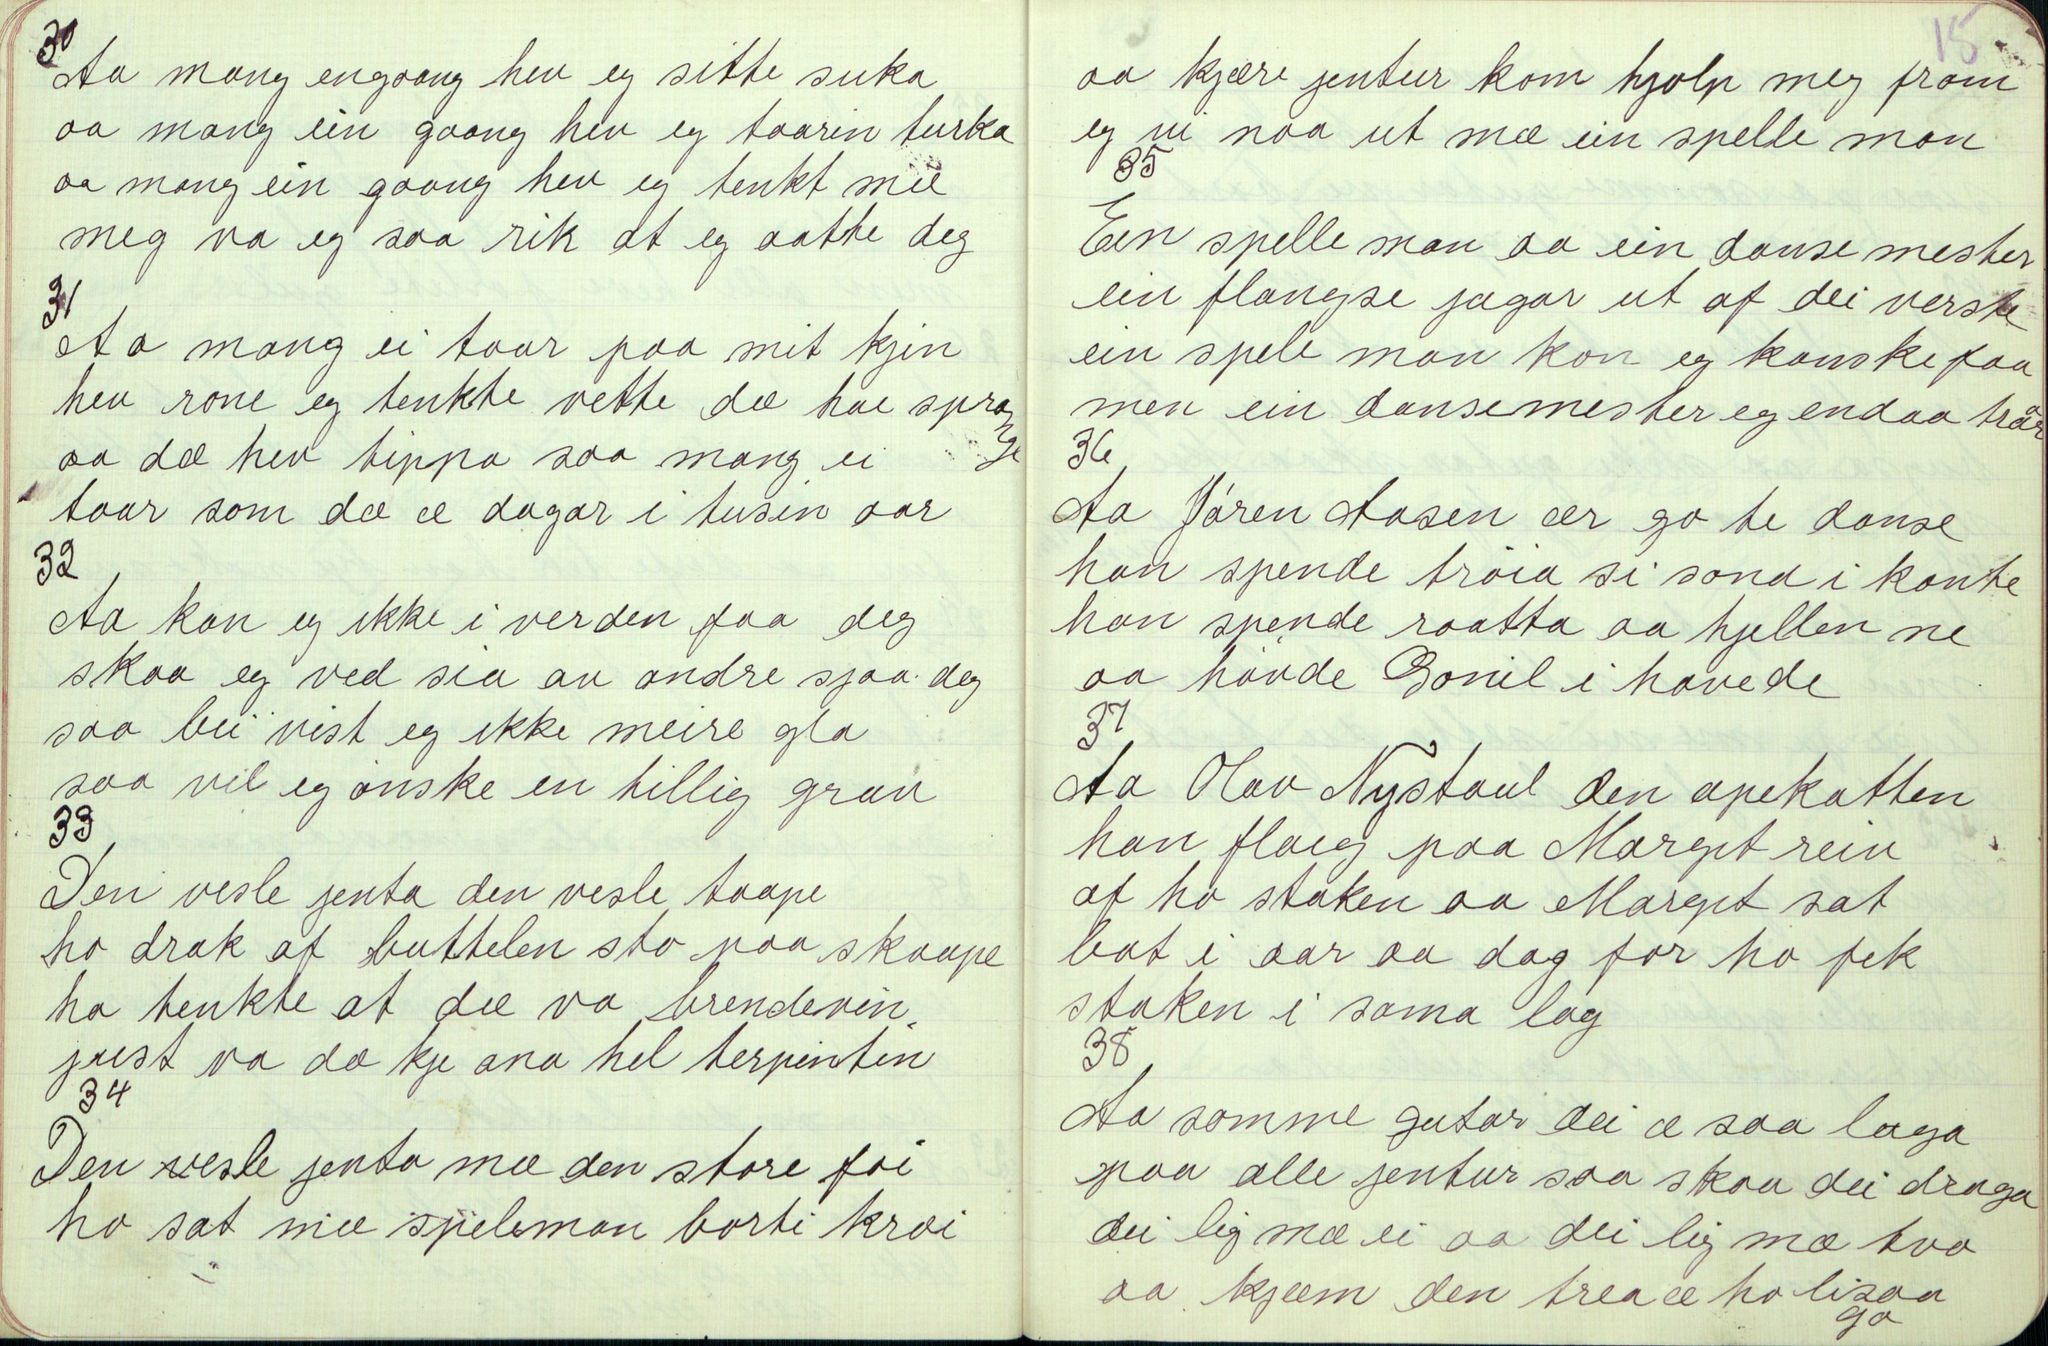 30
Aa mang engaang hev eg sitte suka
aa mang ein gaang hev eg taarin turka
aa mang ein gaang hev eg tenkt mæ
meg va eg saa rik at eg aatte deg
31
Aa mang ei taar paa mit kjin
hev rone eg tenkte vette dæ hae sprange
aa dæ hev tippa saa mang ei
taar som dæ æ dagar i tusin aar
32
Aa kan eg ikke i verden faa deg
skaa eg ved sia av andre sjaa deg
saa bei vist eg ikke meire gla
saa vil eg ønske en tillig grav
33
Den vesle jenta den vesle taape
ho drak af buttelen sto paa skaape
ho tenkte at dæ va brendevin
juest va dæ kje ana hel terpintin
34
Den vesle jenta mæ den store føi
ho sat mæ spjelsman borti krøi
15
aa kjære jentur kom hjolp meg fram
eg vi naa ut mæ ein spelle man
35
Ein spelle man aa ein danse mester
ein flangse jagar ut af dei verste
ein spele man kan eg kanske faa
men ein dansemester eg endaa traar
36
Aa Jøren Aasen ær go te danse
han spende trøia si sond i kante
han spende raatta aa hjellen ne
aa høvde Gonil i hovede
37
Aa Olav Nystaul den apekatten
han flaeg paa Margit rein
af ho staken aa Margit sat
bat i aar aa dag for ho fek
staken i sama lag
38
Aa somme gutar dei æ saa laga
paa alle jentur saa skaa dei draga
dei lig mæ ei aa dei lig mæ tvo
aa kjæm den trea æ ho lisaa
go